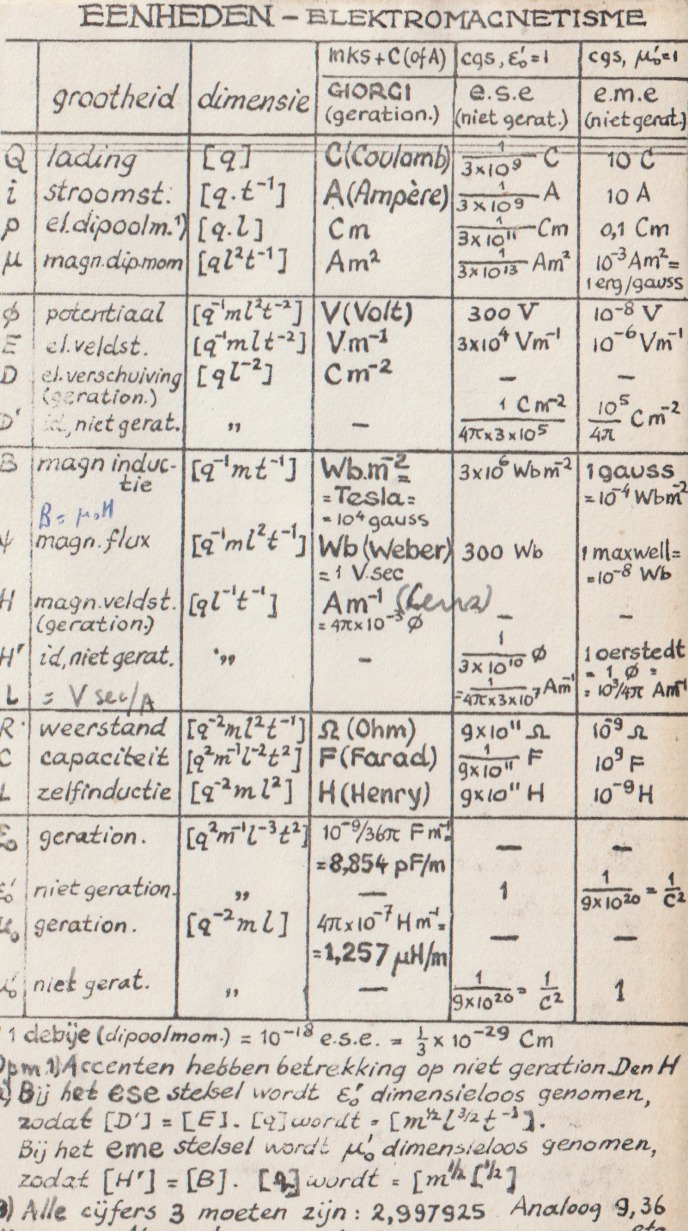 EENHEDEN - ELEKTROMAGNETISME
grootheid dimensie mks+C(of A) GIORGI (geration.) cgs, ε₀'=1 e.s.e (niet gerat.) cgs, μ₀'=1 e.m.e (niet gerat.)
Q lading [q] C(Coulomb) 1/3×10⁹ C 10 C
i stroomst. [q.t⁻¹] A(Ampère) 1/3×10⁹ A 10 A
p el.dipoolm.¹) [q.l] Cm 1/3×10¹¹ Cm 0,1 Cm
μ magn.dip.mom [ql²t⁻¹] Am² 1/3×10¹³ Am² 10⁻³Am²=
1 erg/gauss
ϕ potentiaal [q⁻¹ml²t⁻²] V(Volt) 300 V 10⁻⁸ V
E el.veldst. [q⁻¹mlt⁻²] Vm⁻¹ 3×10⁴ Vm⁻¹ 10⁻⁶ Vm⁻¹
D el.verschuiving [ql⁻²] Cm⁻² — —
(geration.)
D' id, niet gerat. ,, — 1 Cm⁻²/4π×3×10⁵ 10⁵/4π Cm⁻²
B magn induc- [q⁻¹mt⁻¹] Wb.m⁻²= 3×10⁶ Wbm⁻² 1 gauss
tie =Tesla= =10⁻⁴ Wbm⁻²
B=μ₀H =10⁴ gauss
ψ magn. flux [q⁻¹ml²t⁻¹] Wb(Weber) 300 Wb 1 maxwell=
=1 V.sec =10⁻⁸ Wb
H magn.veldst. [ql⁻¹t⁻¹] Am⁻¹ (Lenz) — —
(geration.) =4π×10⁻³ Ø
H' id, niet gerat. ,, — 1/3×10¹⁰ Ø 1 oerstedt
= 1 Ø =
L = V sec/A =1/4π×3×10⁷ Am⁻¹ =10³/4π Am⁻¹
R weerstand [q⁻²ml²t⁻¹] Ω(Ohm) 9×10¹¹ Ω 10⁻⁹ Ω
C capaciteit [q²m⁻¹l⁻²t²] F(Farad) 1/9×10¹¹ F 10⁹ F
L zelfinductie [q⁻²ml²] H(Henry) 9×10¹¹ H 10⁻⁹ H
ε₀ geration. [q²m⁻¹l⁻³t²] 10⁻⁹/36π Fm⁻¹ — —
=8,854 pF/m
ε₀' niet geration. ,, — 1 1/9×10²⁰ = 1/C²
μ₀ geration. [q⁻²ml] 4π×10⁻⁷Hm⁻¹= — —
=1,257 μH/m
μ₀' niet gerat. ,, — 1/9×10²⁰ = 1/C² 1
1 debije (dipoolmom.) = 10⁻¹⁸ e.s.e. = 1/3 × 10⁻²⁹ Cm
Opm 1) Accenten hebben betrekking op niet geration. D en H
2) Bij het ese stelsel wordt ε₀' dimensieloos genomen,
zodat [D'] = [E]. [q] wordt = [m^½ l^3/2 t⁻¹].
Bij het eme stelsel wordt μ₀' dimensieloos genomen,
zodat [H'] = [B]. [q] wordt = [m^½ l^½]
3) Alle cijfers 3 moeten zijn: 2,997925 Analoog 9,36